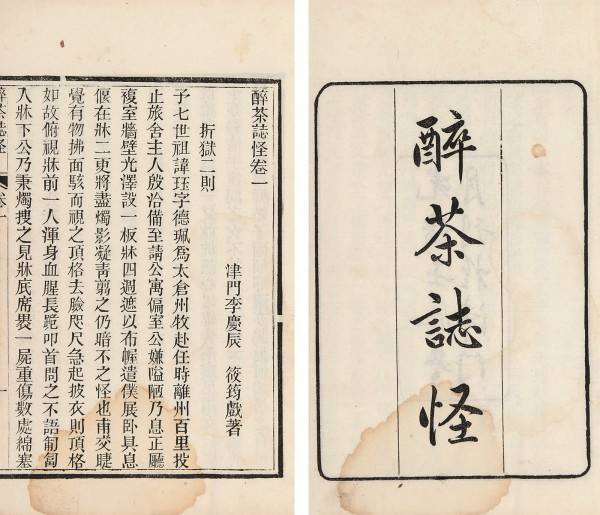 醉茶誌怪
醉茶誌怪卷一
津門李慶辰 筱筠戲著
折獄二則
予七世祖諱珏字德珮爲太倉州牧赴任時離州百里投
止旅舍主人殷洽備至請公寓偏室公嫌嗌陋乃息正廳
複室牆壁光澤設一板牀四週遮以布幄遣僕展卧具息
偃在牀二更將盡燭影凝靑翦之仍暗不之怪也甫交睫
覺有物拂面駭而視之頂格去臉咫尺急起披衣則頂格
如故俯視牀前一人渾身血腥長跪叩首問之不語匍匐
入牀下公乃秉燭搜之見牀底席裹一屍重傷數處綿塞
醉茶誌怪 卷一 一